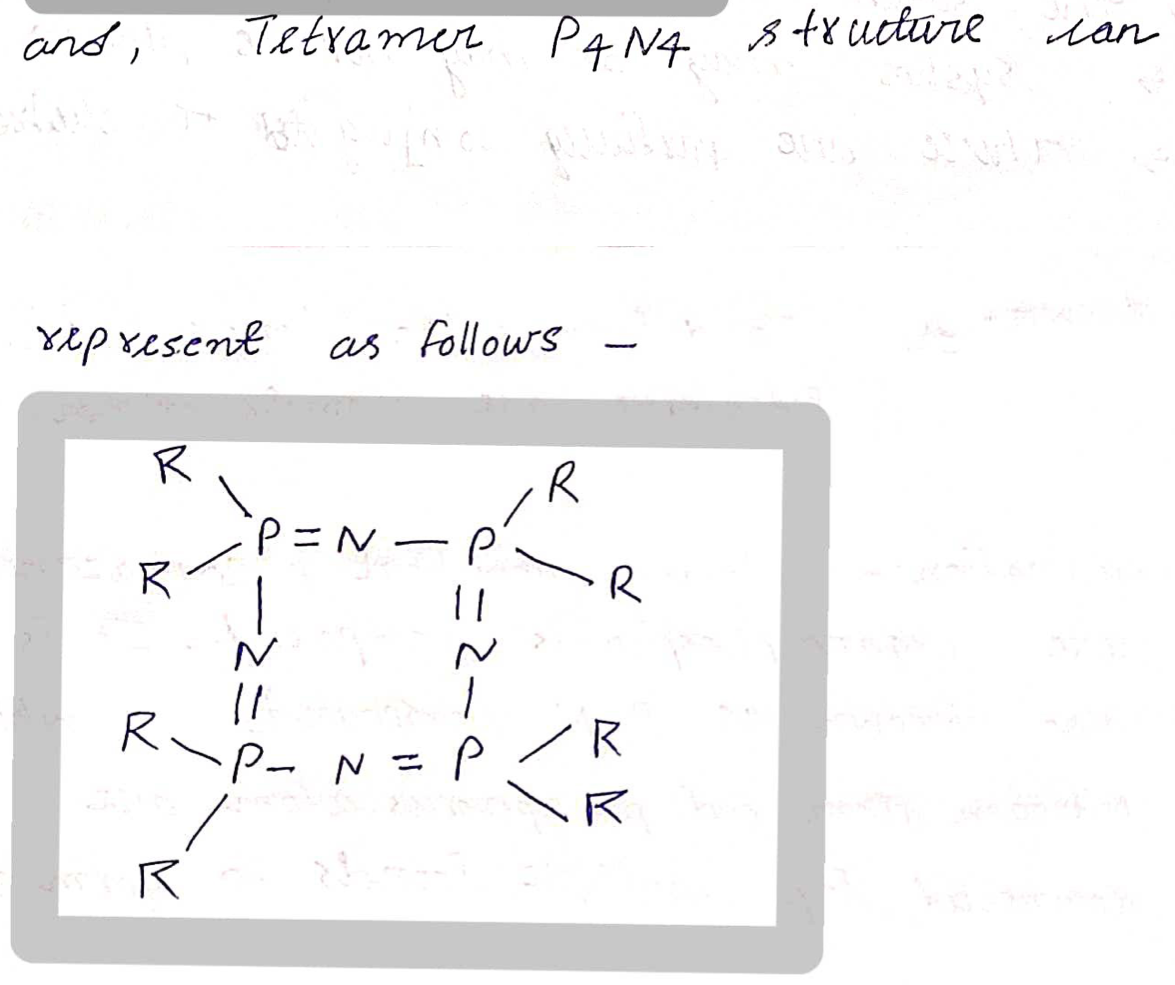 and, Tetramer P4N4 structure can
represent as follows -
R R
P = N - P
R R
N N
R R
P - N = P
R
R